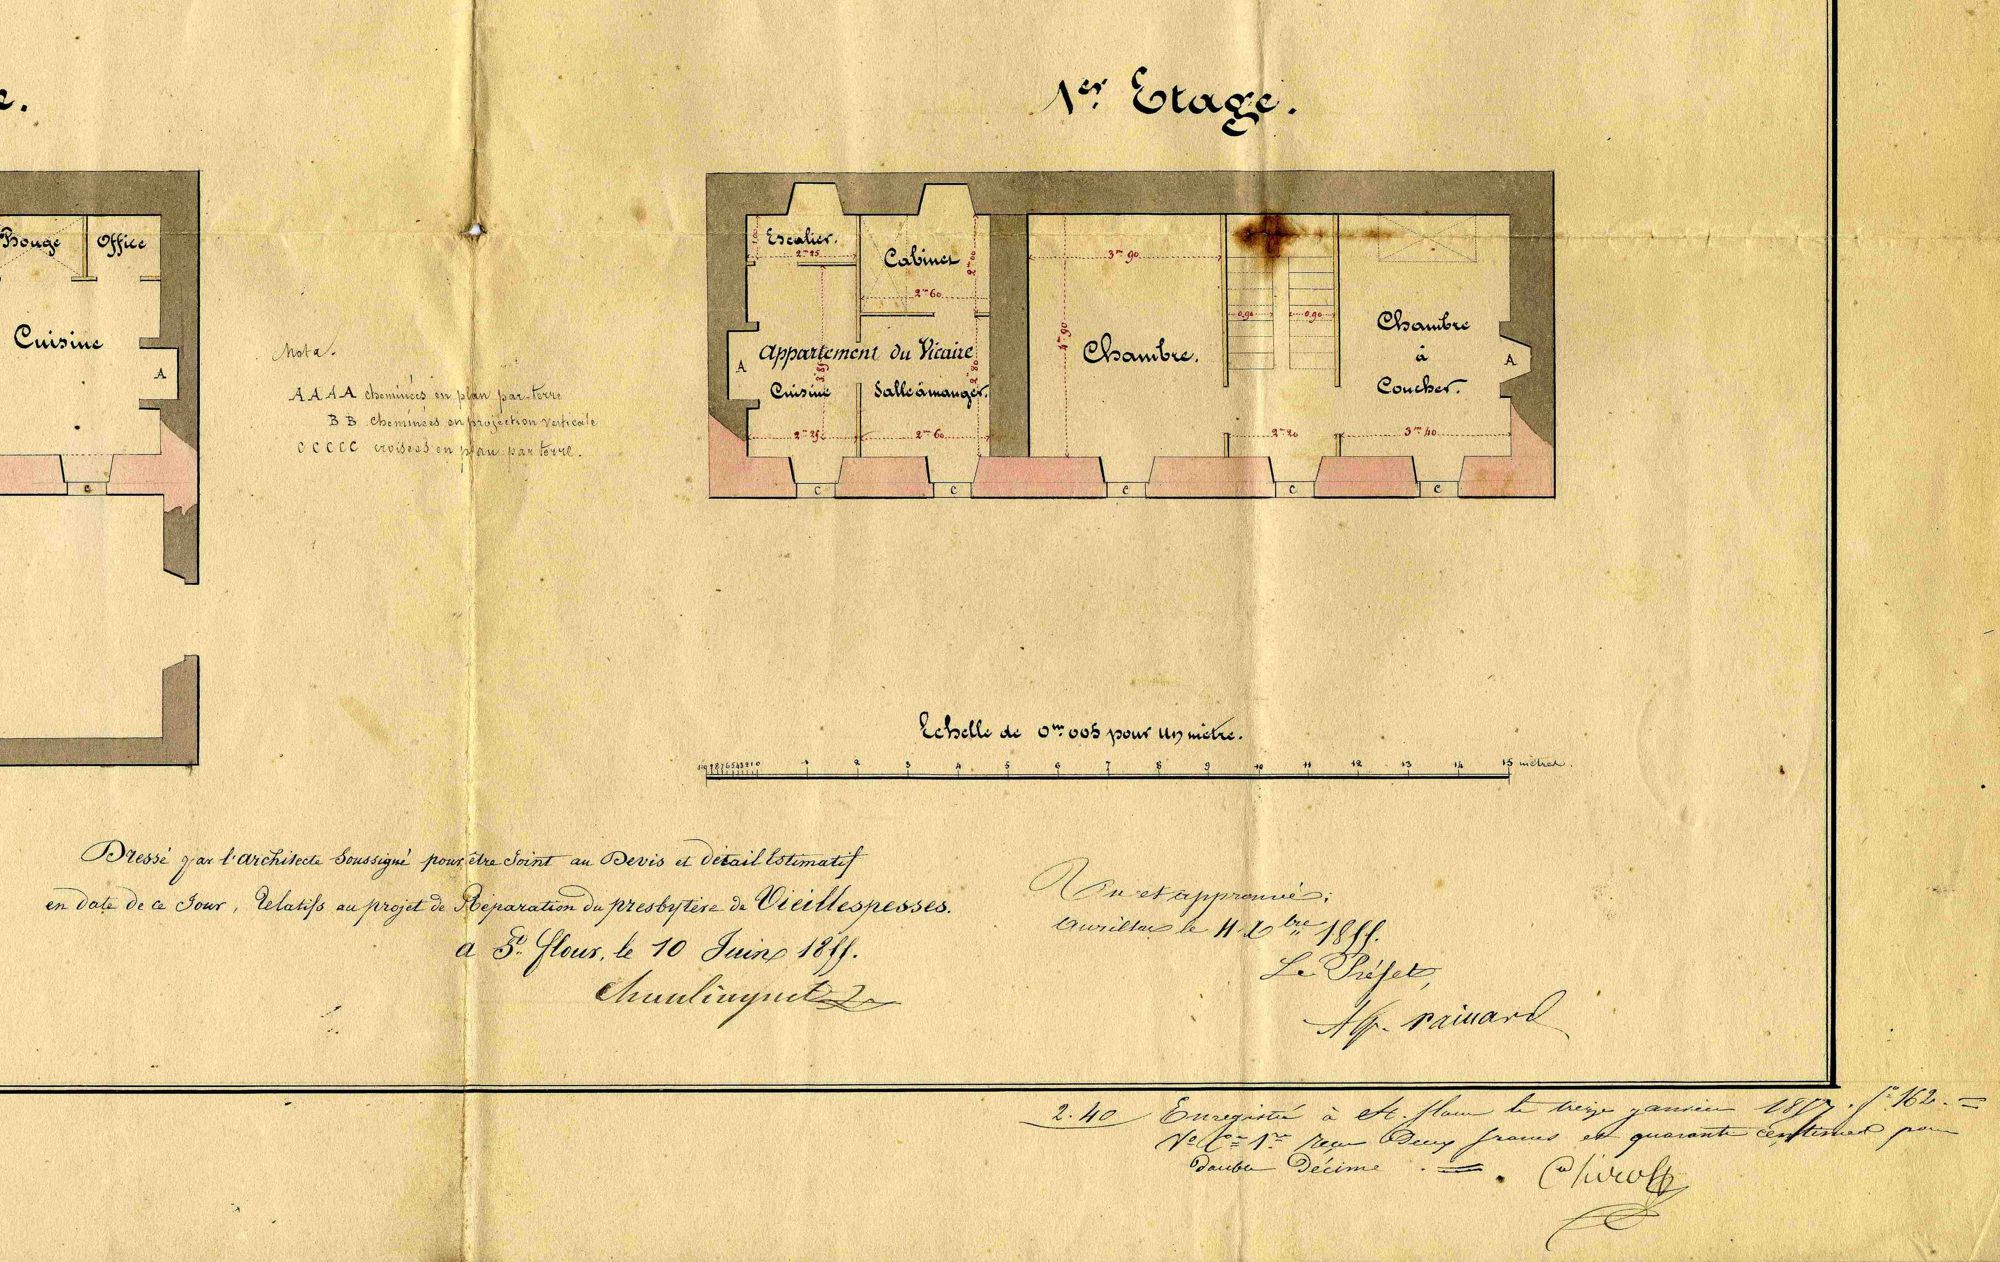 e.
1er Etage.
Bouge
Office
Cuisine
A
Nota.
A A A A cheminées en plan par-terre
B B cheminées en projection verticale
C C C C C croisées en plan par terre.
c
Escalier.
2m 25
Cabinet
2m 00
2m 60
Appartement du Vicaire
Cuisine
Salle à manger.
3m 85
2m 80
2m 25
2m 60
A
3m 90
4m 90
Chambre.
0,90
0,90
2m 20
Chambre
à
Coucher.
3m 40
A
c
c
c
c
c
Echelle de 0m 005 pour un mètre.
10 9 8 7 6 5 4 3 2 1 0 1 2 3 4 5 6 7 8 9 10 11 12 13 14 15 mètres.
Dressé par l'architecte soussigné pour être Joint au Devis et détail Estimatif
en date de ce Jour, Relatifs au projet de Réparation du presbytère de Vieillespesses.
a St. flour, le 10 Juin 1855.
Vu et approuvé:
Aurillac le 11 Xbre 1855.
Le Préfet,
2.40 Enregistré à St. flour le treize janvier 1857. fo 162.
Vo Cse 1re reçu Deux francs et quarante centimes pour
Double Décime